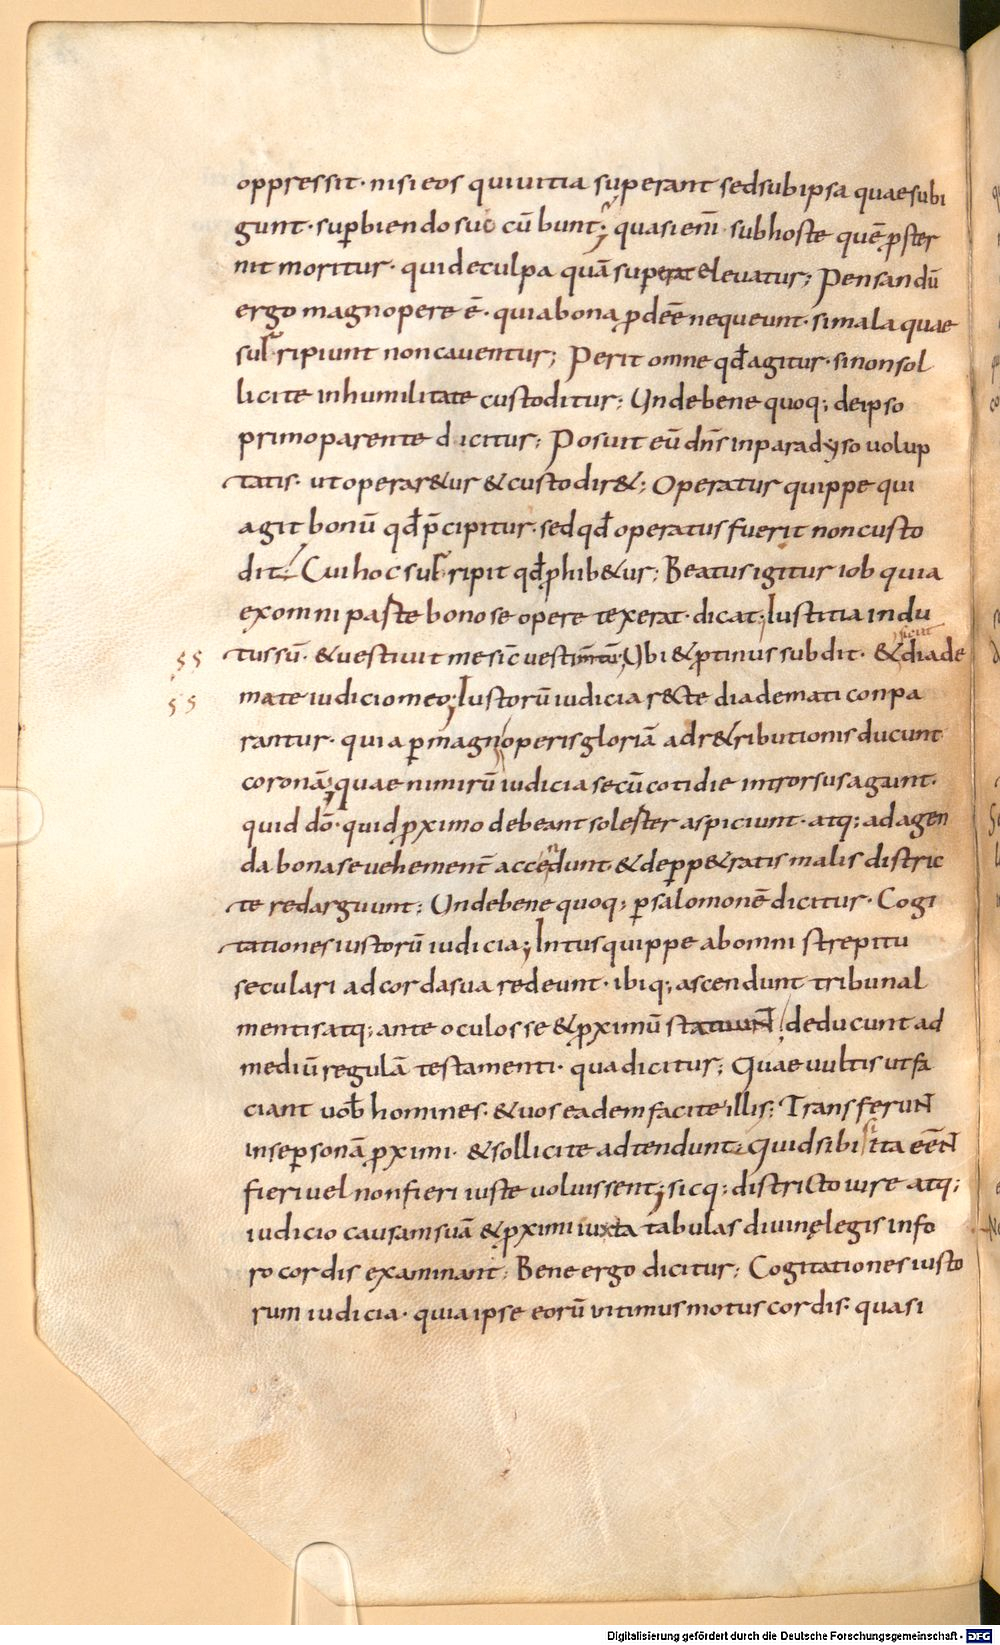 oppressit· nisi eos qui uitia superant sed sub ipsa quae subi
gunt· suꝑbiendo succūbunt; quasi eni̅ sub hoste quē ꝓster
nit moritur· qui de culpa quā superat eleuatur; Pensandū
ergo magnopere ē· quia bona ꝓdeē nequeunt· si mala quae
subripiunt non cauentur; Perit omne qđ agitur· si non sol
licite in humilitate custoditur; Unde bene quoq; de ipso
primo parente dicitur; Posuit eū dn̄s in paradyso uolup
tatis· ut operar&ur & custodir&; Operatur quippe qui
agit bonū qđ p̄cipitur· sed qđ operatus fuerit non custo
dit; Cui hoc subripit qđ ꝓhib&ur; Beatus igitur iob quia
ex omni parte bono se opere texerat· dicat; Iustitia indu
tus sū· & uestiuit me sic̄ uestim̄tū; Ubi & ꝓtinus subdit· & sicut diade
mate iudicio meo; Iustorū iudicia recte diademati conpa
rantur· quia ꝑ magni operis gloriā ad r&ributionis ducunt
coronā; quae nimirū iudicia secū cotidie introrsus agunt·
quid dō· quid ꝓximo debeant solerter aspiciunt· atq; ad agen
da bona se uehement̄ accendunt & de ꝑp&ratis malis distric
te redarguunt; Unde bene quoq; ꝑ salomonē dicitur· Cogi
tationes iustorū iudicia; Intus quippe ab omni strepitu
seculari ad corda sua redeunt· ibiq; ascendunt tribunal
mentis atq; ante oculos se & ꝓximū statuunt; deducunt ad
mediū regulā testamenti· qua dicitur; Quae uultis ut fa
ciant uob̄ homines· & uos eadem facite illis; Transferunt
in se ꝑsonā ꝓximi· & sollicite adtendunt; quid sibi si ita eēnt
fieri uel non fieri iuste uoluissent; sicq; districto iure atq;
iudicio causam suā & ꝓximi iuxta tabulas diuinę legis in fo
ro cordis examinant; Bene ergo dicitur; Cogitationes iusto
rum iudicia· quia ipse eorū intimus motus cordis· quasi
Digitalisierung gefördert durch die Deutsche Forschungsgemeinschaft - DFG